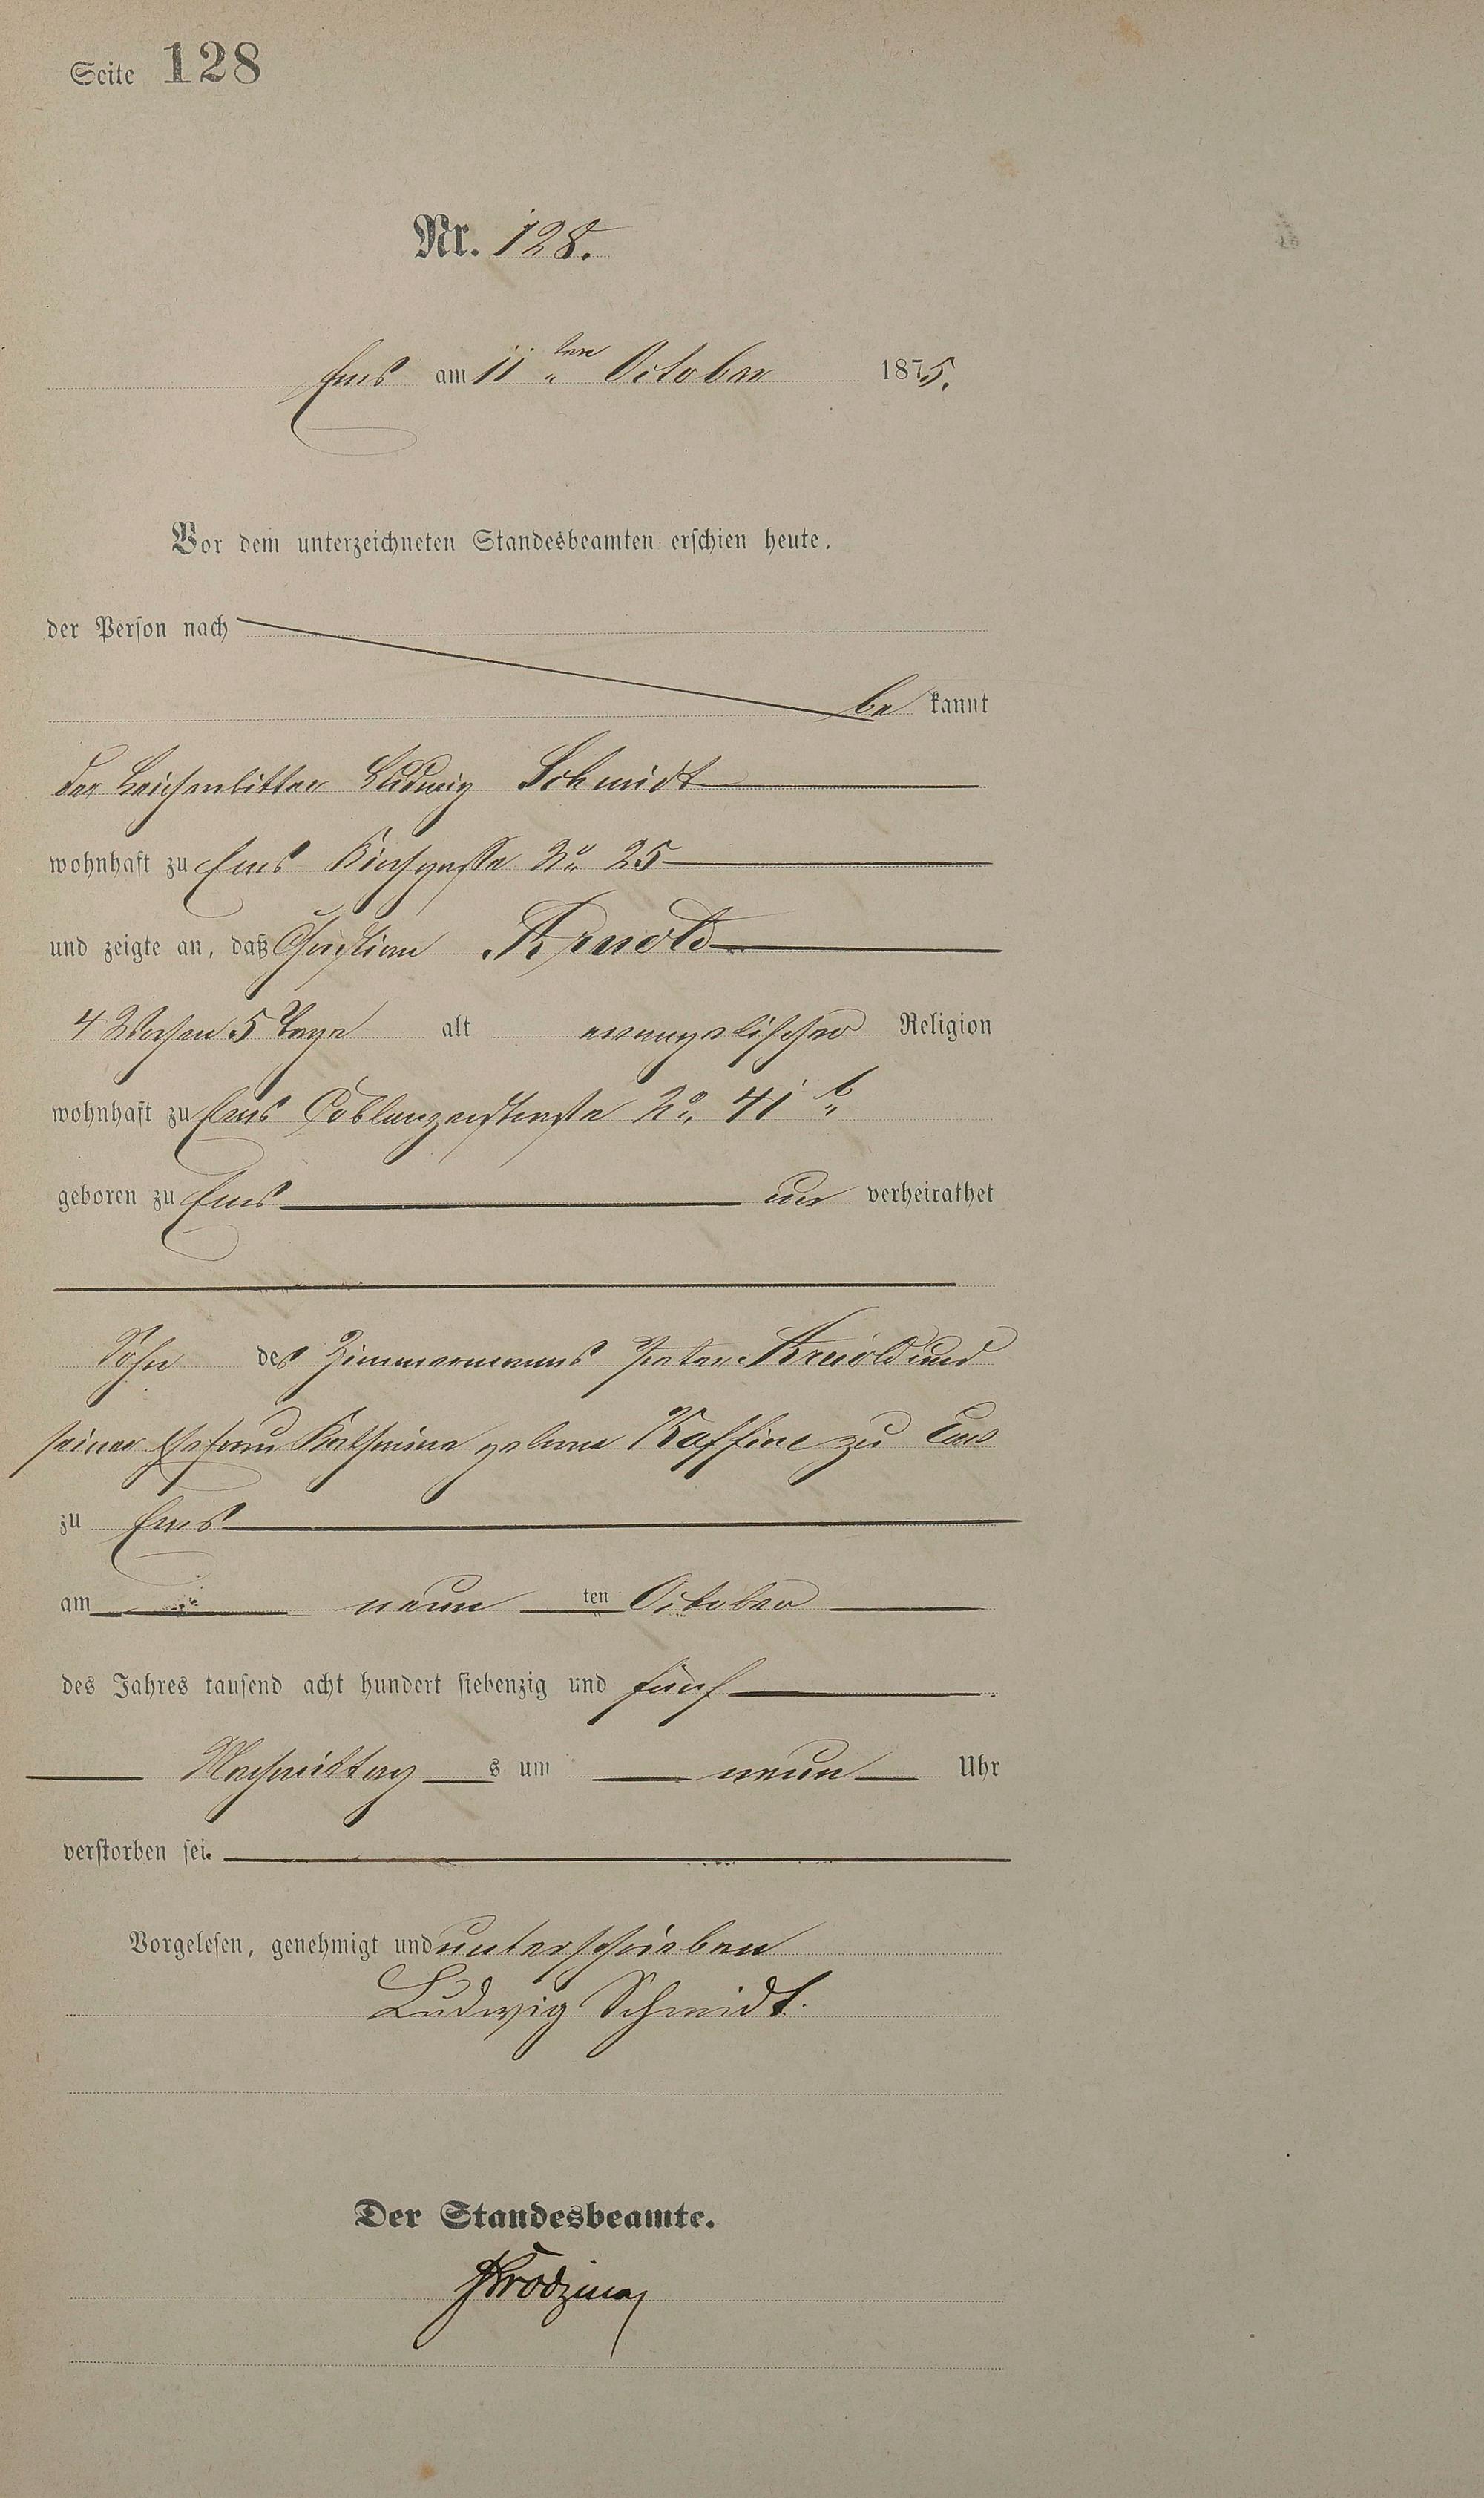 Seite 128
Nr. 128.
Ems am 11ten October 1875.
Vor dem unterzeichneten Standesbeamten erschien heute,
der Person nach
be kannt
der Leichenbitter Ludwig Schmidt
wohnhaft zu Ems Kirchgasse No 25
und zeigte an, daß Christian Arnold
4 Wochen 5 Tage alt evangelischer Religion
wohnhaft zu Ems Coblenzerstraße No 41 b
geboren zu Ems un verheirathet
Sohn des Zimmermanns Peter Arnold und
seiner Ehefrau Katharina geborne Kaffine zu Ems
zu Ems
am neun ten October
des Jahres tausend acht hundert siebenzig und fünf
Nachmittag s um neun Uhr
verstorben sei.
Vorgelesen, genehmigt und unterschrieben
Ludwig Schmidt.
Der Standesbeamte.